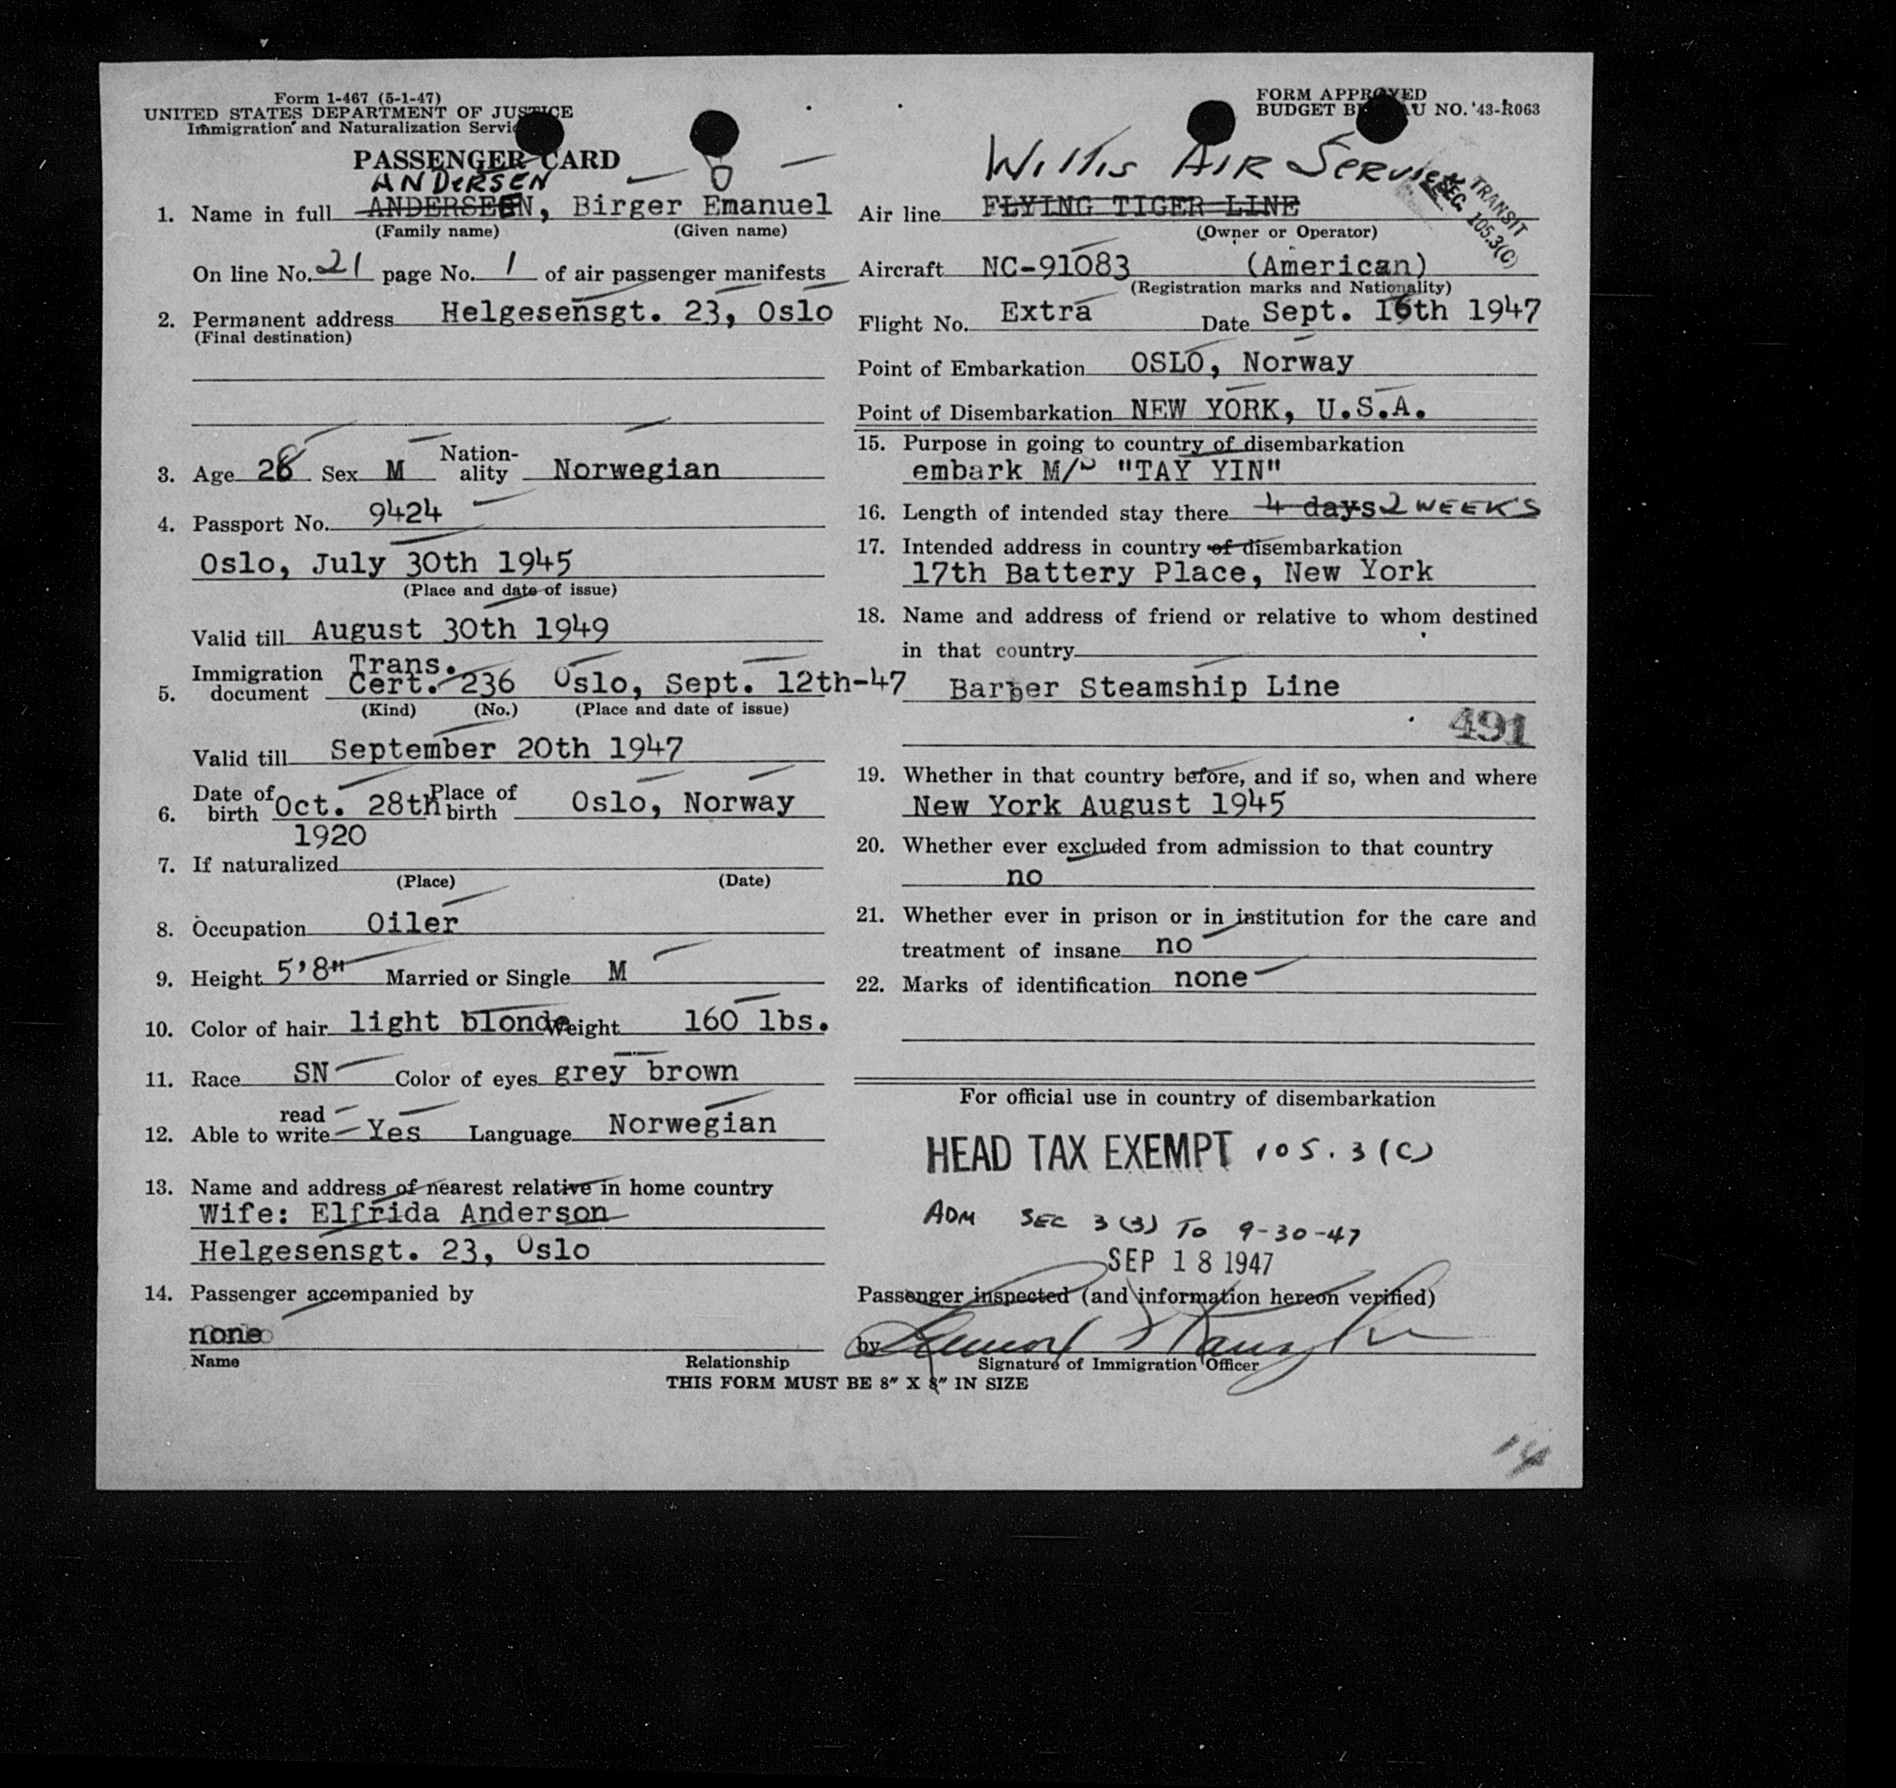 Form 1-467 (5-1-47)
UNITED STATES DEPARTMENT OF JUSTICE
Immigration and Naturalization Servi
PASSENGER CARD
ANDERSEN
1. Name in full ANDERSEEN, Birger Emanuel
(Family name) (Given name)
On line No. 21 page No. 1 of air passenger manifests
2. Permanent address Helgesensgt. 23, Oslo
(Final destination)
3. Age 26 Sex M Nation-ality Norwegian
4. Passport No. 9424
Oslo, July 30th 1945
(Place and date of issue)
Valid till August 30th 1949
5. Immigration document Trans. Cert. 236 Oslo, Sept. 12th-47
(Kind) (No.) (Place and date of issue)
Valid till September 20th 1947
6. Date of birth Oct. 28th Place of birth Oslo, Norway
1920
7. If naturalized
(Place) (Date)
8. Occupation Oiler
9. Height 5'8" Married or Single M
10. Color of hair light blonde Weight 160 lbs.
11. Race SN Color of eyes grey brown
12. Able to read write Yes Language Norwegian
13. Name and address of nearest relative in home country
Wife: Elfrida Anderson
Helgesensgt. 23, Oslo
14. Passenger accompanied by
none
Name Relationship
FORM APPROVED
BUDGET B U NO. 43-R063
Willis Air Service
TRANSIT
SEC. 105.3(C)
Air line FLYING TIGER LINE
(Owner or Operator)
Aircraft NC-91083 (American)
(Registration marks and Nationality)
Flight No. Extra Date Sept. 16th 1947
Point of Embarkation OSLO, Norway
Point of Disembarkation NEW YORK, U.S.A.
15. Purpose in going to country of disembarkation
embark M/ "TAY YIN"
16. Length of intended stay there 4 days 2 WEEKS
17. Intended address in country of disembarkation
17th Battery Place, New York
18. Name and address of friend or relative to whom destined
in that country
Barber Steamship Line
491
19. Whether in that country before, and if so, when and where
New York August 1945
20. Whether ever excluded from admission to that country
no
21. Whether ever in prison or in institution for the care and
treatment of insane no
22. Marks of identification none
For official use in country of disembarkation
HEAD TAX EXEMPT 105.3(C)
ADM SEC 3(3) TO 9-30-47
SEP 18 1947
Passenger inspected (and information hereon verified)
by
Signature of Immigration Officer
THIS FORM MUST BE 8" X 8" IN SIZE
14